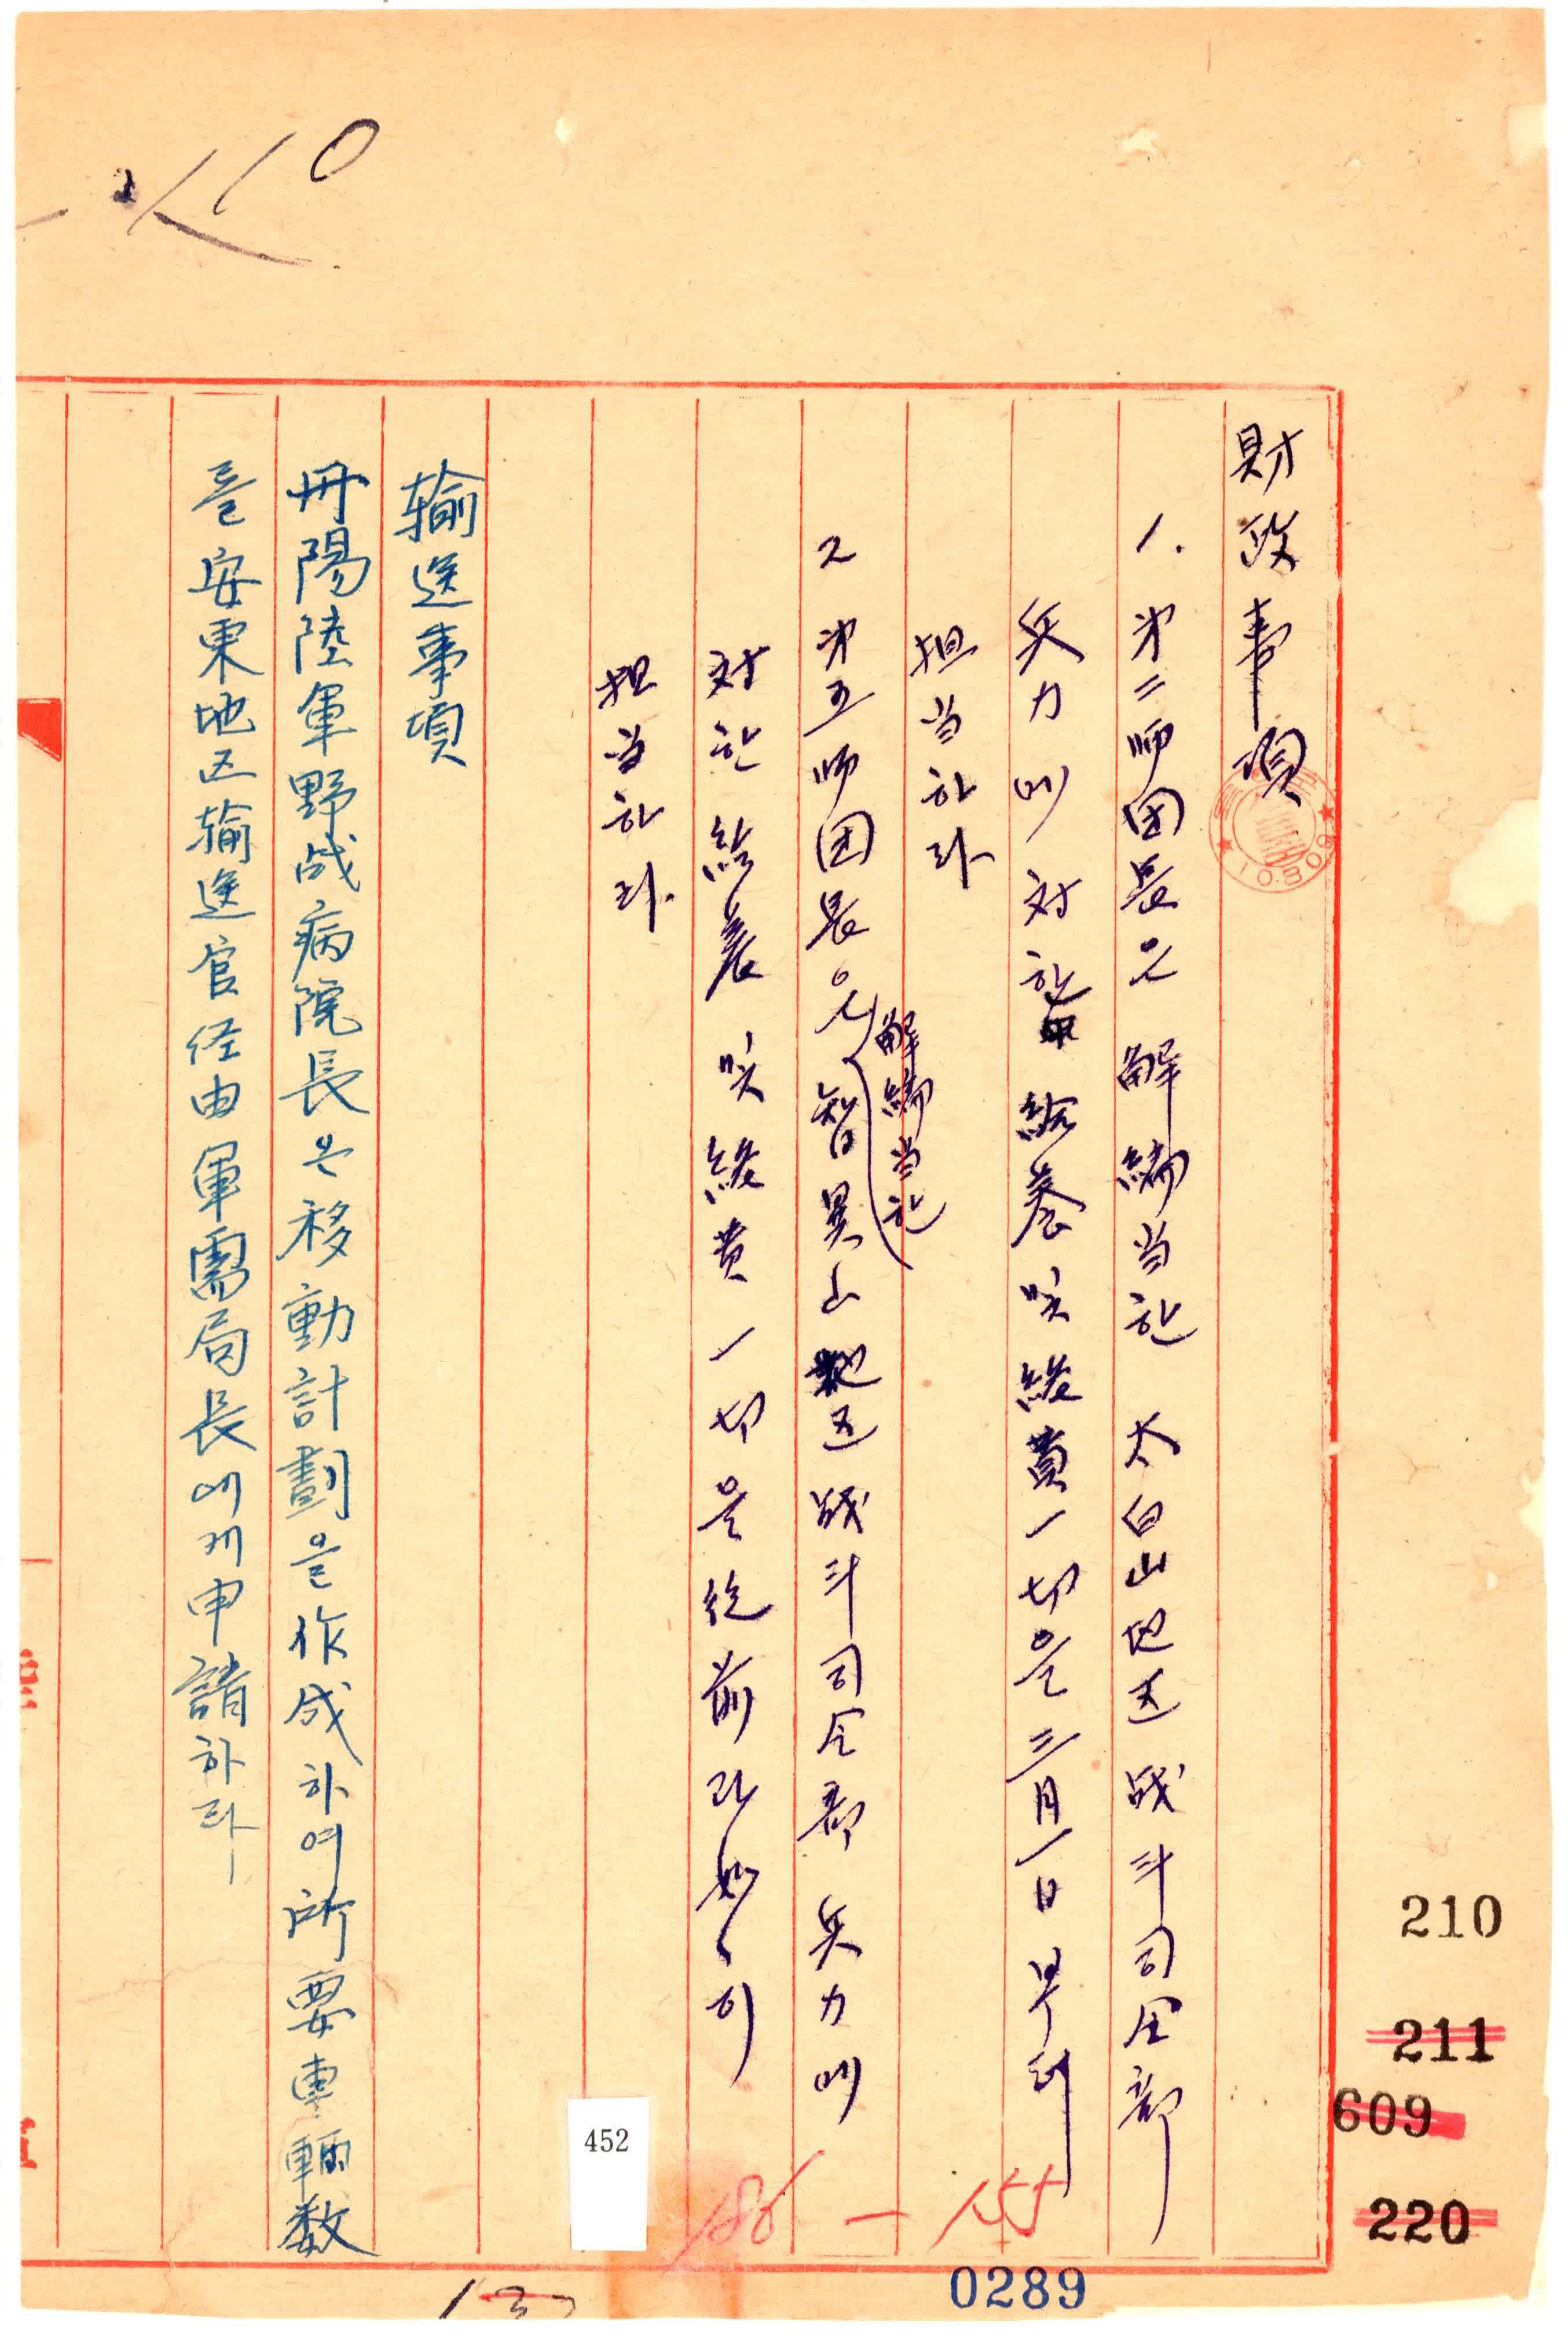 財政事項
1. 㐧二师団長은 解編当한 太白山地区战斗司令部
兵力에 対한 給養 및 経費 一切은 三月一日부터
担当하라
2 㐧五师団長은 解編当한 智異山地区战斗司令部 兵力에
対한 給養 및 経費 一切은 従前과 如히
担当하라.
输送事項
丹陽陸軍野战病院長은 移動計劃을 作成하여 所要車輛数
를 安東地区输送官 经由 軍需局長에게 申請하라
210
211
609
220
452
186 - 155
0289